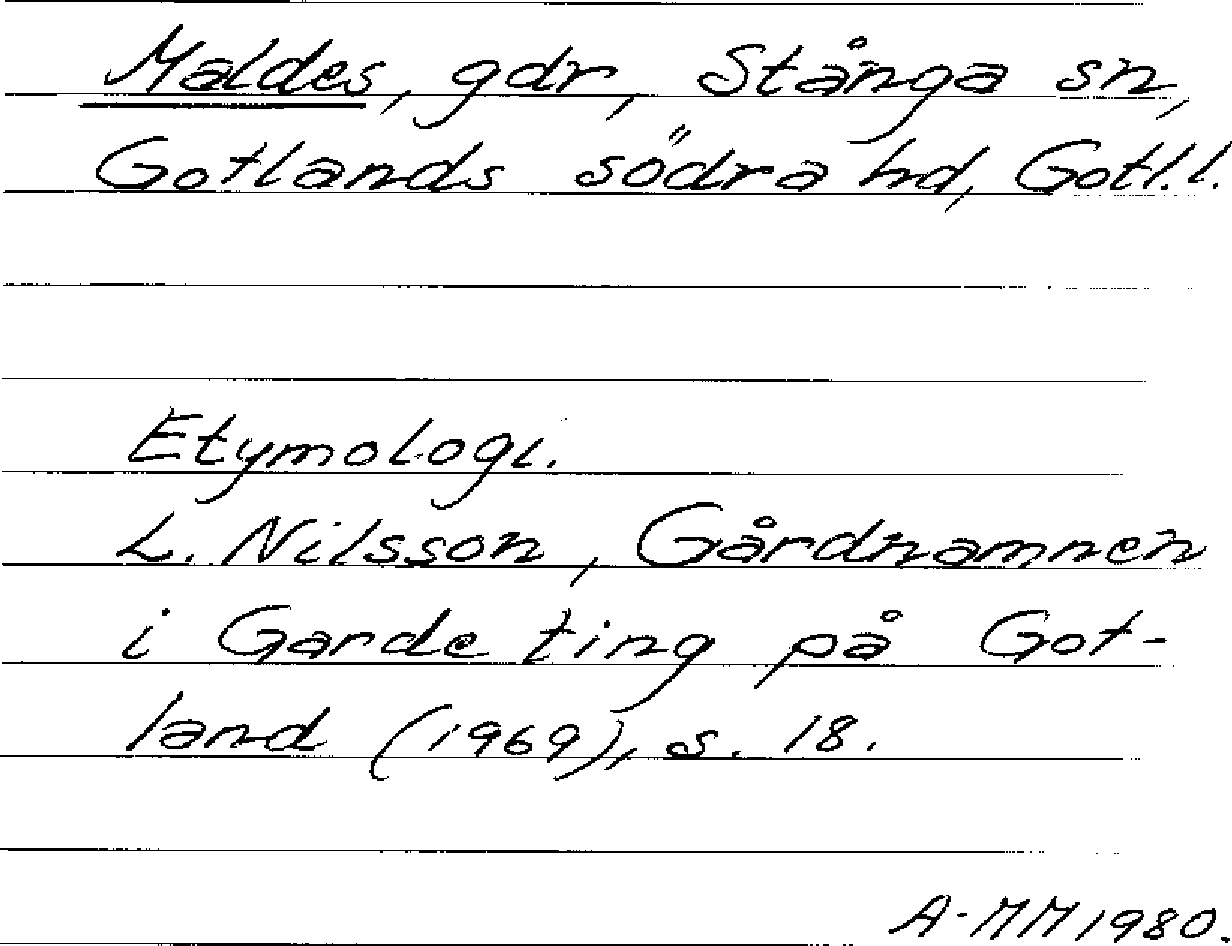 Maldes, gdr, Stånga sn,
Gotlands södra hd, Gotl.l.
Etymologi.
L. Nilsson, Gårdnamnen
i Garde ting på Got-
land (1969), s. 18.
A-MM 1980.